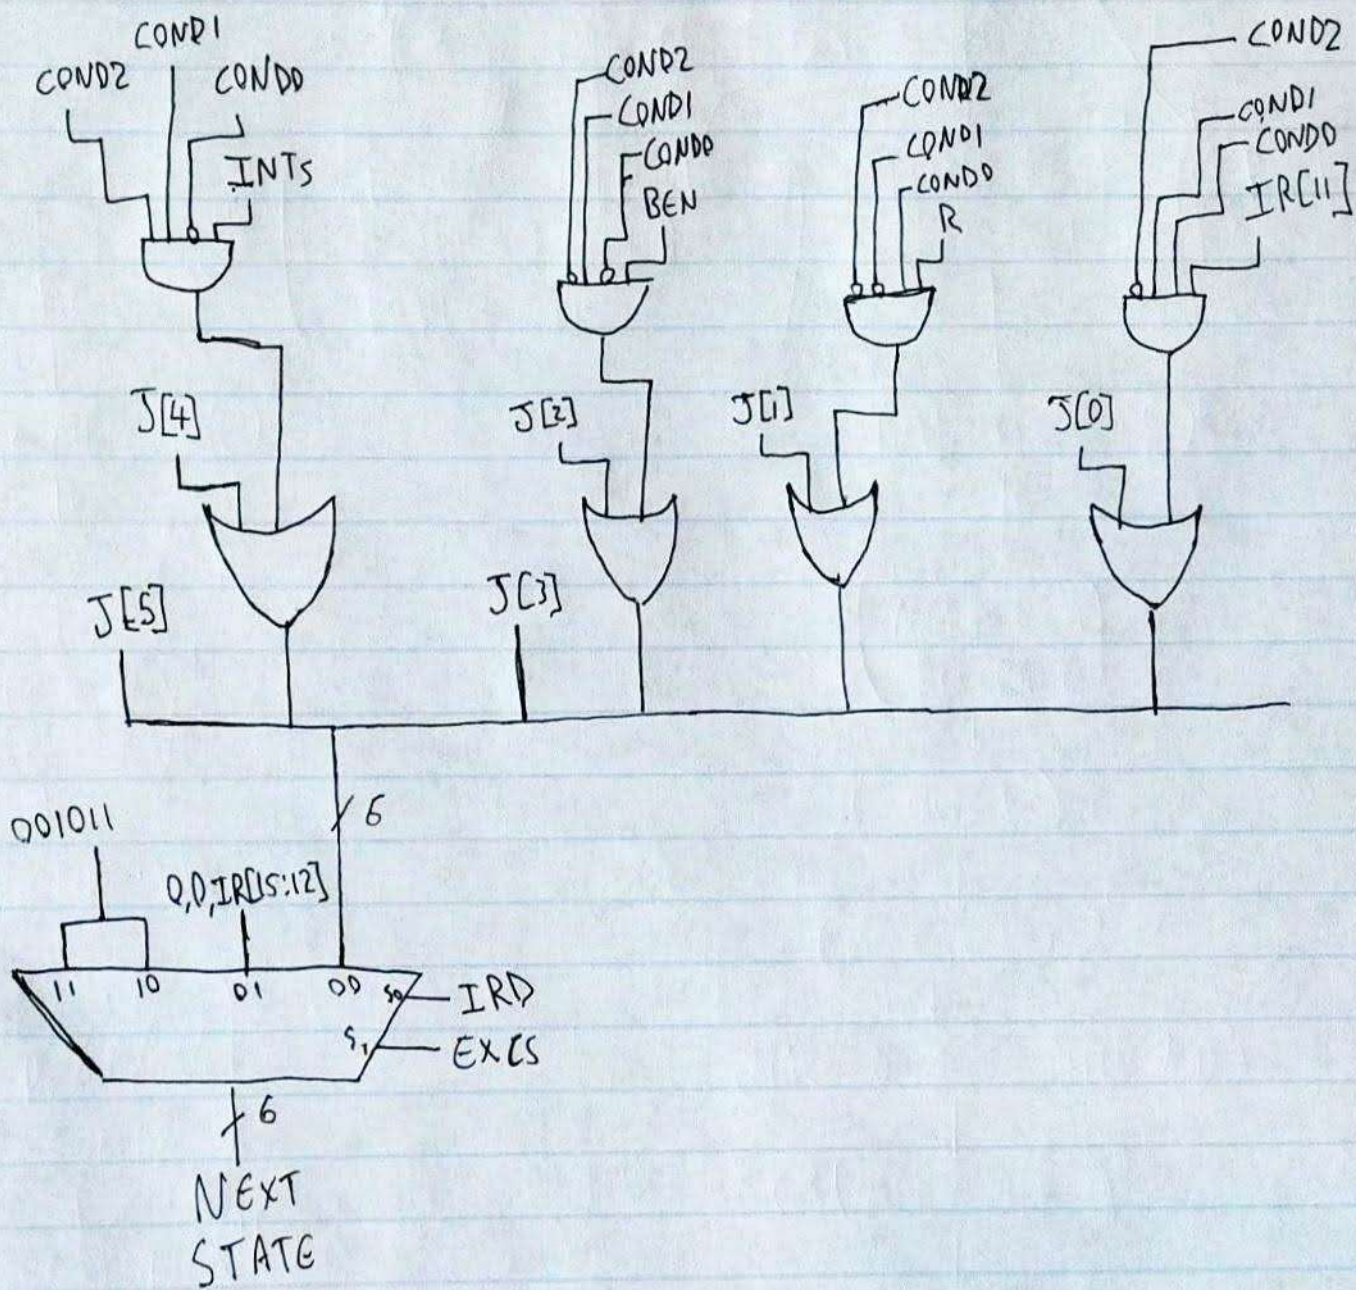 COND1
COND2
COND0
INTs
COND2
COND1
COND0
BEN
COND2
COND1
COND0
R
COND2
COND1
COND0
IR[11]
J[4]
J[2]
J[1]
J[0]
J[5]
J[3]
6
001011
0,0,IR[15:12]
11 10 01 00 S0 IRD
S1 EXCS
6
NEXT
STATE